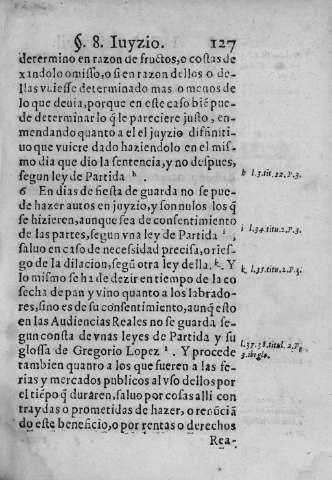 §. 8. Iuyzio. 127
determino en razon de fructos, o costas de
xandolo omisso, o si en razon dellos o de-
llas vuiesse determinado mas o menos de
lo que deuia, porque en este caso biē pue-
de determinar lo q̄ le pareciere justo, en-
mendando quanto a el el juyzio diffiniti-
uo que vuiere dado haziendolo en el mis-
mo dia que dio la sentencia, y no despues,
segun ley de Partida h.
h l.3.tit.22.P.3.
6 En dias de fiesta de guarda no se pue-
de hazer autos en juyzio, y son nulos los q̄
se hizieren, aunque sea de consentimiento
de las partes, segun vna ley de Partida i,
i l.34.titu.2.P.3.
saluo en caso de necessidad precisa, o ries-
go de la dilacion, segū otra ley della. k. Y
k l.35.titu.2.P.3.
lo mismo se ha de dezir en tiempo de la co
secha de pan y vino quanto a los labrado-
res, sino es de su consentimiento, aunq̄ esto
en las Audiencias Reales no se guarda se-
gun consta de vnas leyes de Partida y su
glossa de Gregorio Lopez. Y procede
l.37.38.titul.2.P.
3. ibi glo.
tambien quanto a los que fueren a las fe-
rias y mercados publicos al vso dellos por
el tiēpo q̄ duraren, saluo por cosas alli con
traydas o prometidas de hazer, o renūciā
do este beneficio, o por rentas o derechos
Rea-